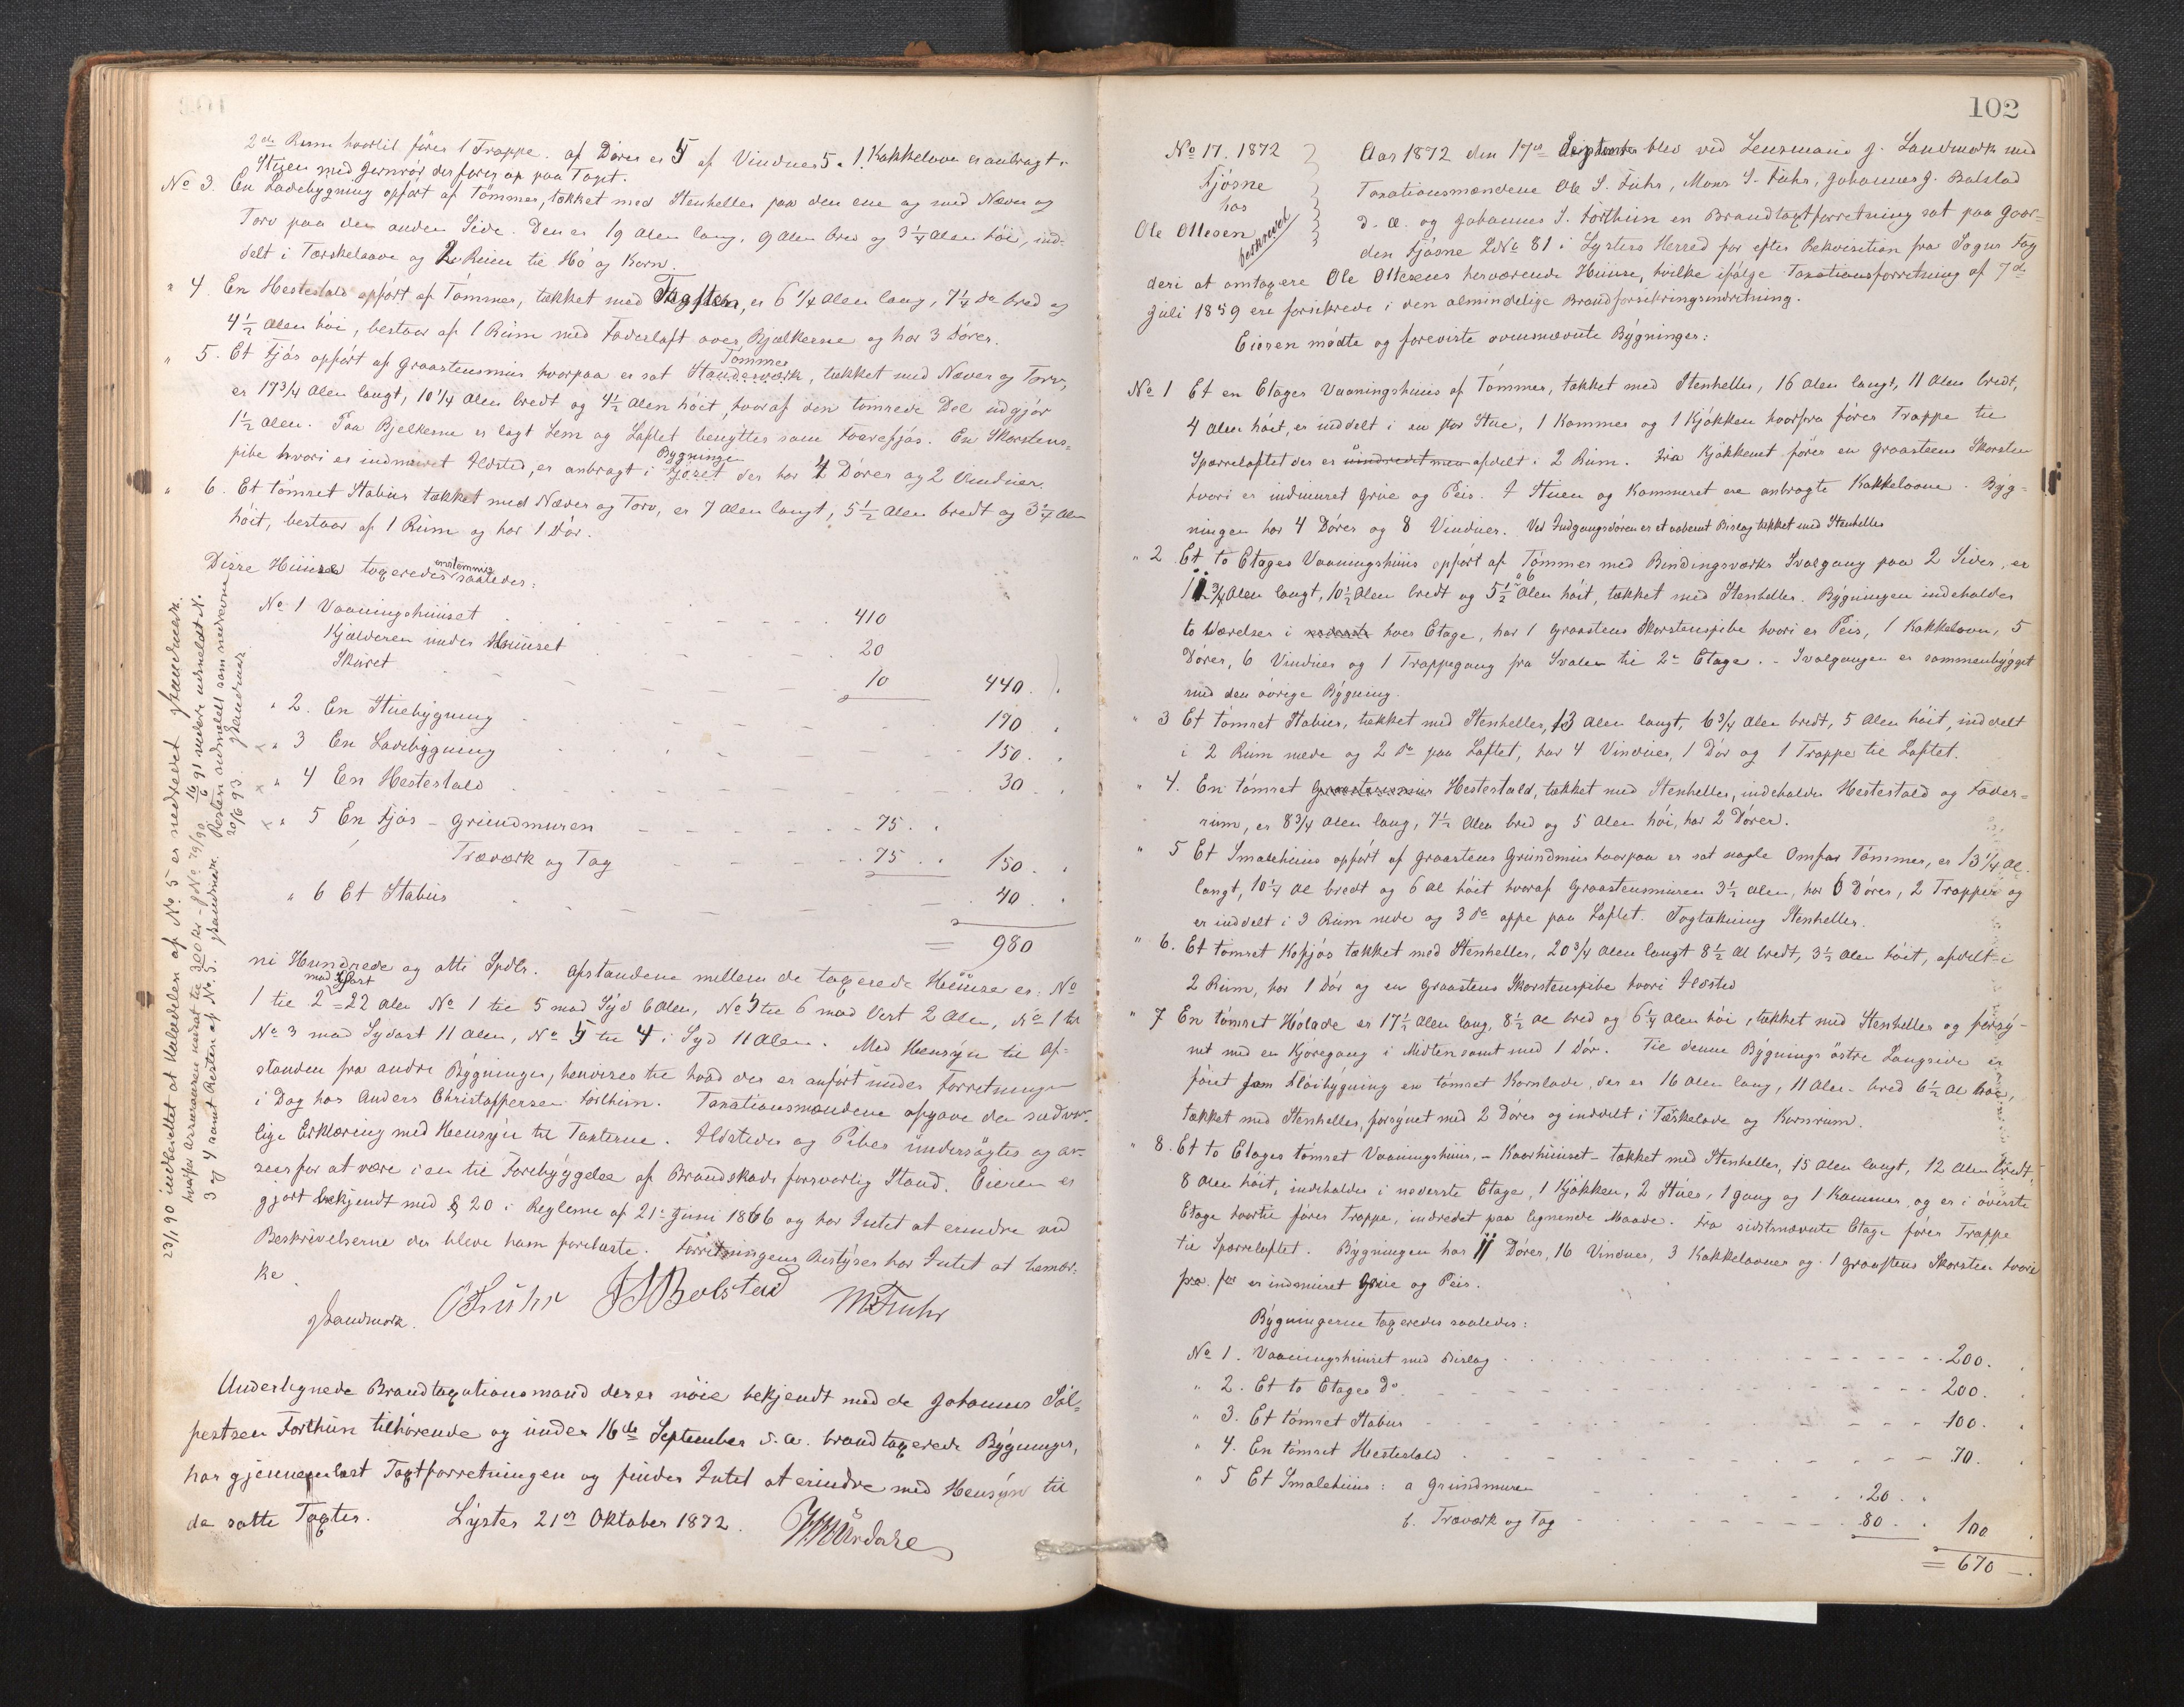 2de Rum hvortil fører 1 Trappe. af Dører er 5 af Vinduer 5. 1 Kakkelovn er anbragt i
Stuen med Jernrør der fører op paa Taget.
No 3. En Ladebygning opført af Tømmer, tækket med Stenheller paa den ene og med Næver og
Torv paa den anden Side. Den er 19 Alen lang, 9 Alen bred og 3 1/4 Alen høi, ind-
delt i Tærskelaave og 2 Rum til Hø og Korn.
" 4. En Hestestald opført af Tømmer, tækket med Tagsten, er 6 1/4 Alen lang, 7 1/4 do bred og
4 1/2 Alen høi, bestaar af 1 Rum med Foderloft over Bjælkerne og har 3 Dører.
" 5. Et Fjøs opført af Graastensmur hvorpaa er sat Standerværk, tækket med Næver og Torv,
Tømmer
er 17 3/4 Alen langt, 10 1/4 Alen bredt og 4 1/2 Alen høit, hvoraf den tømrede Del udgjør
1 1/2 Alen. Paa Bjelkerne er lagt Lem og Loftet benyttes som Faarefjøs. En Skorstens-
pibe hvori er indmuret Ildsted, er anbragt i Fjøset der har 4 Dører og 2 Vinduer.
Bygninge
" 6. Et tømret Stabur tækket med Næver og Torv, er 7 Alen langt, 5 1/2 Alen bredt og 3 3/4 Alen
høit, bestaar af 1 Rum og har 1 Dør.
Disse Huuse taxeredes enstemmig saaledes:
No 1 Vaaningshuuset 410
Kjælderen under Huuset 20
Skuret 10 440.
" 2. En Stuebygning 170
x " 3 En Ladebygning 150.
x " 4 En Hestestald 30
x " 5 En Fjøs - Grundmuren 75.
Træværk og Tag 75 150
" 6 Et Stabur 40
= 980
ni Hundrede og otti Spdlr. Afstandene mellem de taxerede Huuse er: No
1 til 2 mod Øst = 22 Alen No 1 til 5 mod Syd 6 Alen, No 5 til 6 mod Vest 2 Alen, No 1 til
No 3 mod Sydost 11 Alen, No 5 til 4 i Syd 11 Alen. Med Hensyn til Af-
standen fra andre Bygninger, henvises til hvad der er anført under Forretningen
i Dag hos Anders Christophersen Forthun. Taxationsmændene afgave den sædvan-
lige Erklæring med Hensyn til Taxterne. Ildsteder og Piber undersøgtes og an-
sees for at være i en til Forebyggelse af Brandskade forsvarlig Stand. Eieren er
gjort bekjendt med § 20 i Reglerne af 21de Juni 1866 og har Intet at erindre ved
Beskrivelserne der bleve ham forelæste. Forretningens Bestyrer har Intet at bemær-
ke.
JLandmark. OSFuhr JJBolstad MSFuhr
Underlignede Brandtaxationsmand der er nøie bekjendt med de Johannes Sol-
festsen Forthun tilhørende og under 16de September d. A. brandtaxerede Bygninger,
har gjennemlæst Taxtforretningen og finder Intet at erindre med Hensyn til
de satte Taxter. Lyster 21de Oktober 1872.
23/1 90 indberettet at Halvdelen af No 5 er nedrevet JLandmark.
hvisfor assurancen nedsat til 300 kr - JNo 79/90 16/6 91 videre udmeldt No
3 og 4 samt Resten af No 5. JLandmark. Resten udmeldt som nedrevne
20/6 93. JLandmark
102
No 17. 1872
Fjøsne
hos
Ole Ottesen
beskrevet
Aar 1872 den 17de September blev ved Lensmand J. Landmark med
Taxationsmændene Ole S. Fuhr, Mons S. Fuhr, Johannes J. Bolstad
d. A. og Johannes S. Forthun en Brandtaxtforretning sat paa Gaar-
den Fjøsne LNo 81 i Lysters Herred for efter Rekvisition fra Sogns Fog
deri at omtaxere Ole Ottesens herværende Huuse, hvilke ifølge Taxationsforretning af 7de
Juli 1859 ere forsikrede i den almindelige Brandforsikringsindretning.
Eieren mødte og foreviste ovennævnte Bygninger:
No 1 Et en Etages Vaaningshuus af Tømmer, tækket med Stenheller, 16 Alen langt, 11 Alen bredt,
4 Alen høit, er inddelt i en stor Stue, 1 Kammer og 1 Kjøkken hvorfra fører Trappe til
Sparreloftet der er uindredet men afdelt i 2 Rum. Fra Kjøkkenet fører en Graasteens Skorsten
hvori er indmuret Grue og Peis. I Stuen og Kammeret ere anbragte Kakkelovne. Byg-
ningen har 4 Dører og 8 Vinduer. Ved Indgangsdøren er et aabent Bislag tækket med Stenheller
" 2. Et to Etages Vaaningshuus opført af Tømmer med Bindingsværks Svalgang paa 2 Sider, er
11 3/4 Alen langt, 10 1/2 Alen bredt og 5 1/2 Alen høit, tækket med Stenheller. Bygningen indeholder
to Værelser i nederste hver Etage, har 1 Graastens Skorstenspibe hvori er Peis, 1 Kakkelovn, 5
Dører, 6 Vinduer og 1 Trappegang fra Svalen til 2den Etage. - Svalgangen er sammenbygget
med den øvrige Bygning.
" 3 Et tømret Stabur, tækket med Stenheller, 13 Alen langt, 6 3/4 Alen bredt, 5 Alen høit, inddelt
i 2 Rum nede og 2 do paa Loftet, har 4 Vinduer, 1 Dør og 1 Trappe til Loftet.
" 4. En tømret Graastensmur Hestestald, tækket med Stenheller, indeholder Hestestald og Foder-
rum, er 8 3/4 Alen lang, 7 1/2 Alen bred og 5 Alen høi, har 2 Dører.
" 5 Et Smalehuus opført af Graastens Grundmur hvorpaa er sat nogle Omfar Tømmer, er 13 1/4 Al.
langt, 10 1/4 Al bredt og 6 Al høit hvoraf Graastensmuren 3 1/2 Alen, har 6 Dører, 2 Trapper og
er inddelt i 3 Rum nede og 3 do oppe paa Loftet. Tagtækning Stenheller.
" 6. Et tømret Kofjøs tækket med Stenheller, 20 3/4 Alen langt 8 1/2 Al bredt, 3 1/2 Alen høit, afdelt i
2 Rum, har 1 Dør og en Graastens Skorstenspibe hvori Ildsted
" 7 En tømret Høladе er 17 1/2 Alen lang, 8 1/2 Al bred og 6 1/4 Alen høi, tækket med Stenheller og forsy-
net med en Kjøregang i Midten samt med 1 Dør. Til denne Bygnings østre Langside er
føiet som Fløibygning en tømret Kornlade, der er 16 Alen lang, 11 Alen bred 6 1/2 Al høi,
tækket med Stenheller, forsynet med 2 Dører og inddelt i Tærskelade og Kornrum.
" 8. Et to Etages tømret Vaaningshuus, - Kaarhuuset - tækket med Stenheller, 15 Alen langt, 12 Alen bredt,
8 Alen høit, indeholder i nederste Etage, 1 Kjøkken, 2 Stuer, 1 Gang og 1 Kammer, og er i øverste
Etage hvortil fører Trappe, indredet paa lignende Maade. Fra sidstnævnte Etage fører Trappe
til Sparreloftet. Bygningen har 11 Dører, 16 Vinduer, 3 Kakkelovner og 1 Graastens Skorsten hvori
er indmuret Grue og Peis.
Bygningerne taxeredes saaledes:
No 1. Vaaningshuuset med Bislag 200.
" 2. Et to Etages do 200.
" 3. Et tømret Stabur 100.
" 4. En tømret Hestestald 70.
" 5 Et Smalehuus: a Grundmuren 20
b. Træværk og Tag 80 100
= 670